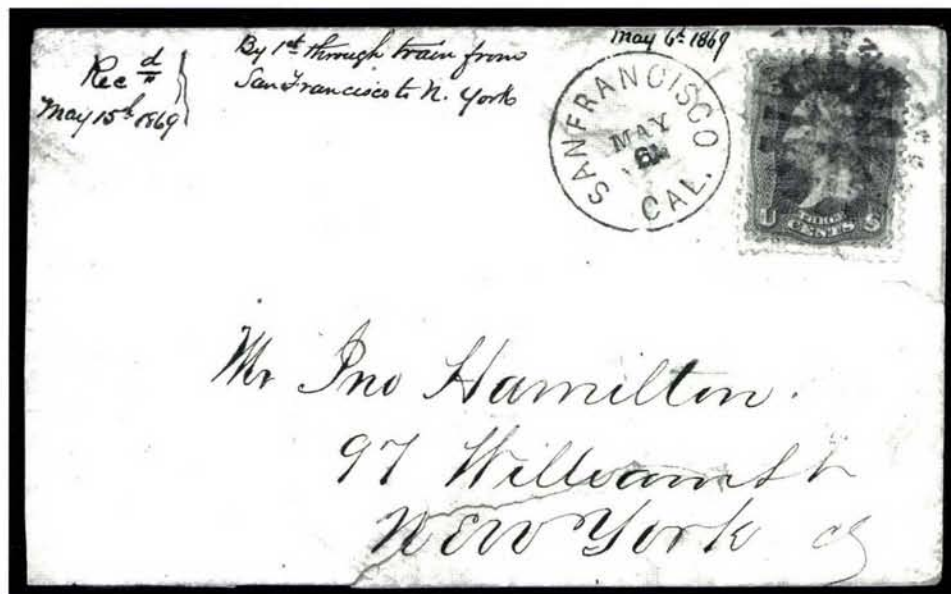 Rec d/"
May 15th 1869
By 1st through train from
San Francisco to N. York
May 6th 1869
SAN FRANCISCO
MAY
6
CAL.
U S
CENTS
Mr Jno Hamilton.
97 William St
New York